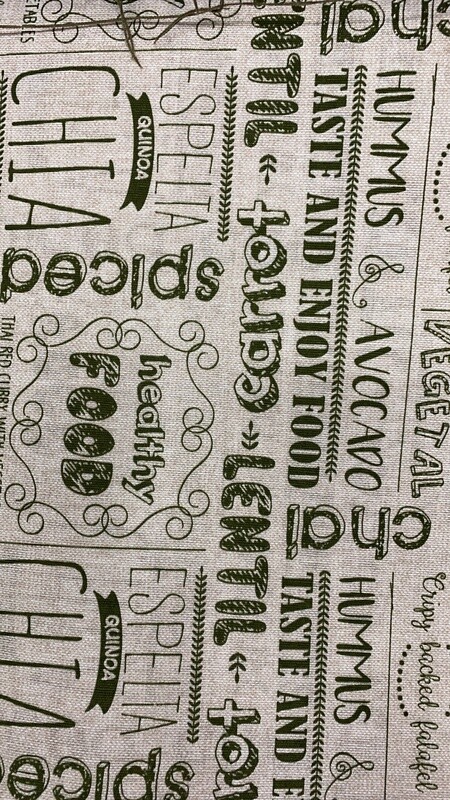 Cripy backed falafel
VEGETAL
HUMMUS & AVOCADO
HUMMUS &
chai
chai
TASTE AND ENJOY FOOD
TASTE AND E
NTIL
carrot
LENTIL
ESPELTA
QUINOA
CHIA
spiced
healthy
FOOD
ESPELTA
QUINOA
CHIA
spiced
THAI RED CURRY WITH